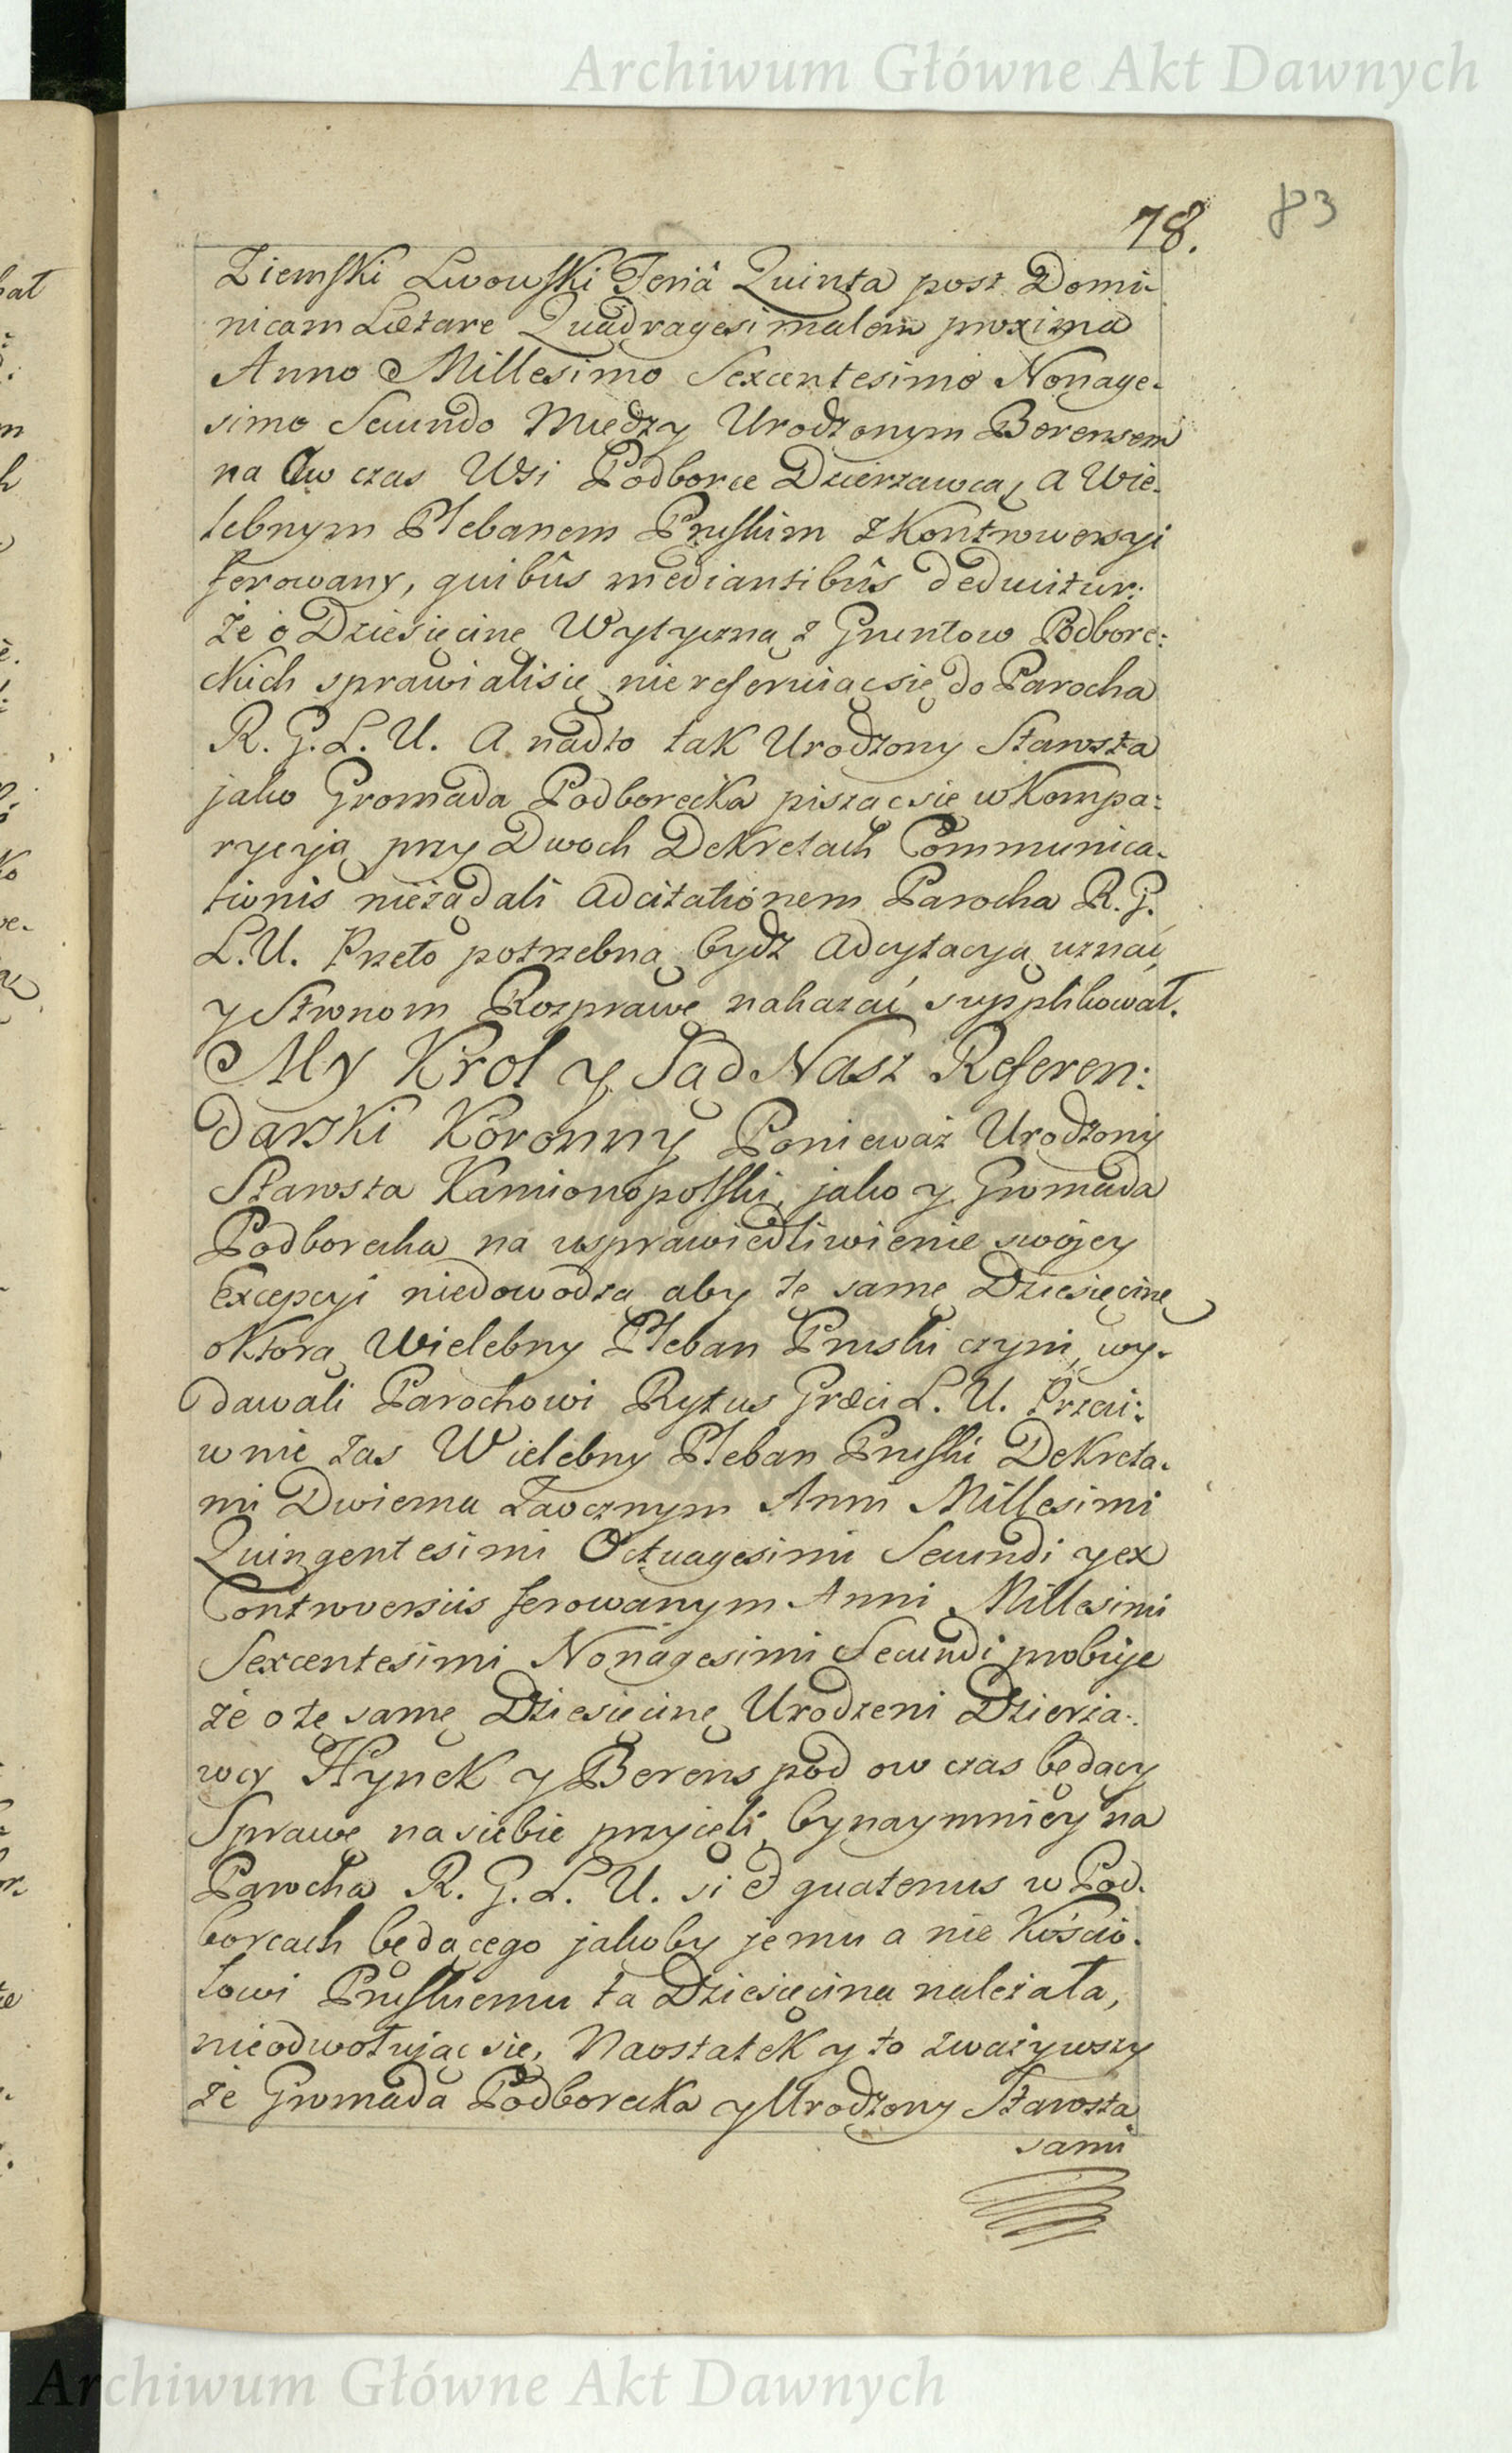 Archiwum Główne Akt Dawnych
78.
83
Ziemski Lwowski Feriâ Quinta post Domi-
nicam Lætare Quadragesimalem proxima
Anno Millesimo Sexcentesimo Nonage-
simo Secundo Między Urodzonym Berensem
na Ow czas Wsi Podborce Dzierzawcą, a Wie-
lebnym Plebanem Pruskim z Kontrowersyi
ferowany, quibûs mediantibûs deducitur:
że o Dziesięcinę Wytyczną z Gruntow Podbore:
ckich sprawialisię nie referuiącsię do Parocha
R. G. L. U. A nadto tak Urodzony Starosta
jako Gromada Podborecka pisząc się w Kompa:
rycyją przy Dwoch Dekretach Communica-
tionis nieżądali adcitationem Parocha R. G.
L. U. Przeto potrzebną bydz adcytacyą uznać,
y Stronom Rozprawę nakazać supplikował.
My Krol y Sąd Nasz Referen:
darski Koronny Ponieważ Urodzony
Starosta Kamionopolski, jako y Gromada
Podborecka na usprawiedliwienie swojey
Excepcyi niedowodzą aby tę samę Dziesięcinę
oktorą Wielebny Pleban Pruski czyni, wy-
dawali Parochowi Rytus Græci L. U. Przeci:
wnie zas Wielebny Pleban Pruski Dekreta-
mi Dwiema Zaocznym Anni Millesimi
Quingentesimi Octuagesimi Secundi y ex
Controversiis ferowanym Anni Millesimi
Sexcentesimi Nonagesimi Secundi probuje
że o tę samę Dziesięcinę Urodzeni Dzierża-
wcy Hynek y Berens pod ow czas będący
Sprawę na siebie przyjęli, bynaymniey na
Parocha R. G. L. U. si et quatenus w Pod-
borcach będącego jakoby jemu a nie Kościo-
łowi Pruskiemu ta Dziesięcina należała,
nieodwołując się, Naostatek y to zważywszy
że Gromada Podborecka y Urodzony Starosta
sami
Archiwum Główne Akt Dawnych